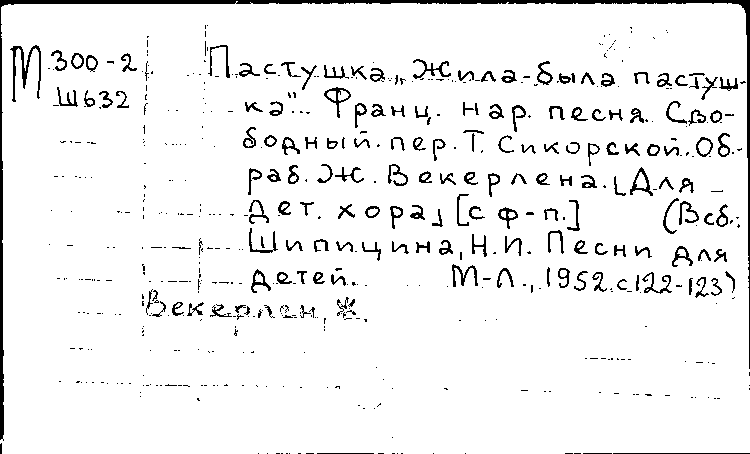 М 300-2 Пастушка „Жила-была пастуш-
Ш632 ка". Франц. нар. песня. Сво-
бодный. пер. Т. Сикорской. Об-
раб. Ж. Векерлена. [Для
дет. хора] [с ф-п.] (В сб.:
Шипицина, Н.И. Песни для
детей. М-Л., 1952. с 122-123)
Векерлен, Ж.